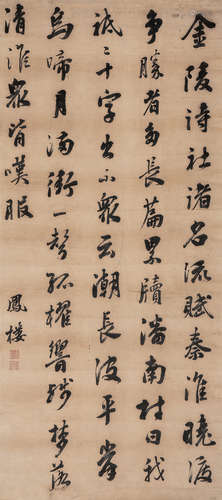 金陵詩社諸名流賦秦淮曉渡
争勝者多長篇累牘潘南村曰我
祗二十字出示衆云潮長波平岸
烏啼月滿街一聲孤櫂響殘夢落
清淮衆皆嘆服
鳳樓